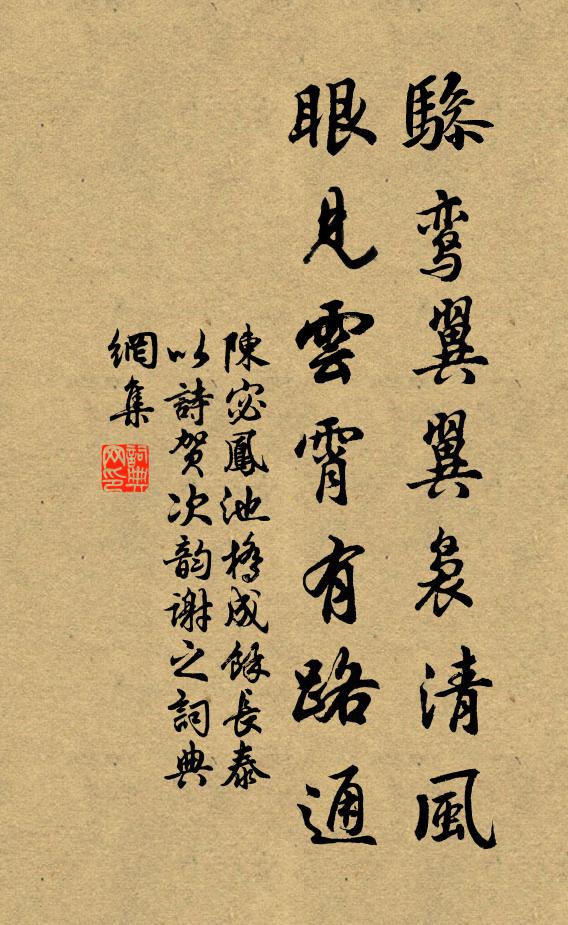 驂鸾翼翼袅清風
眼見雲霄有路通
陳宓鳳池橋成餘長泰
以詩贺次韵謝之詞典
網集
詞典
网印